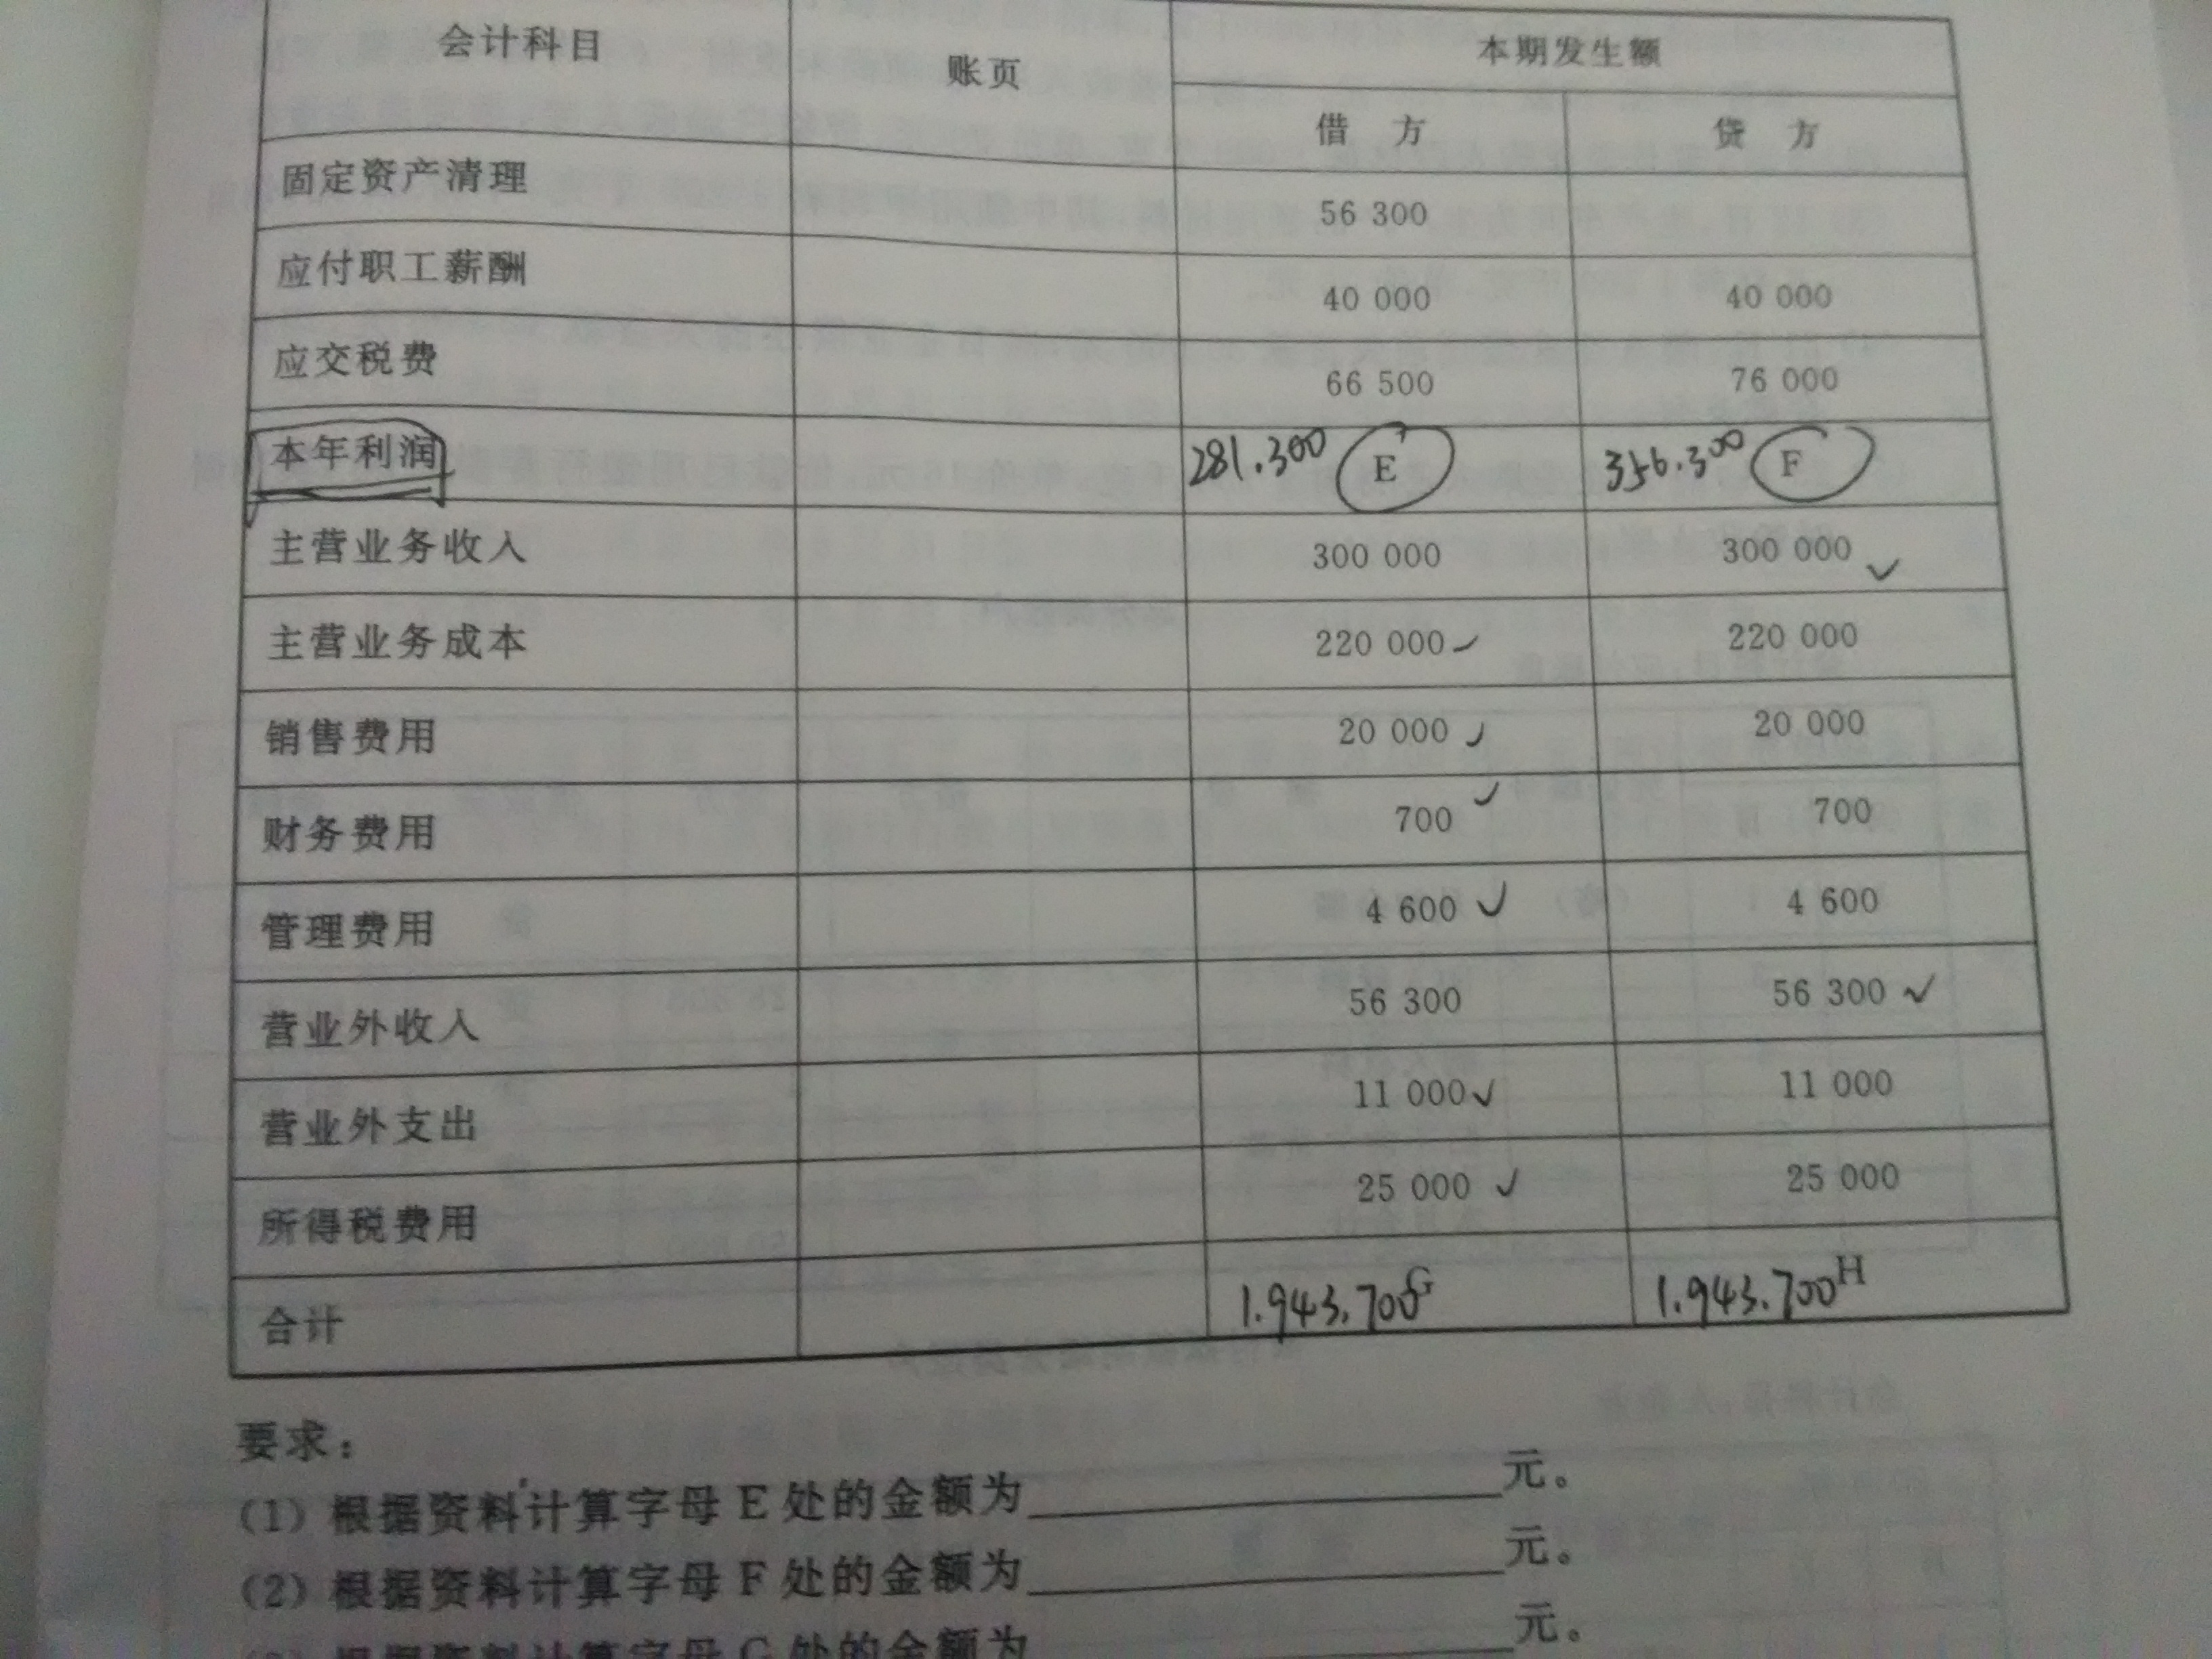 会计科目 账页 本期发生额
借 方 贷 方
固定资产清理 56 300
应付职工薪酬 40 000 40 000
应交税费 66 500 76 000
本年利润 281.300 E 356.300 F
主营业务收入 300 000 300 000
主营业务成本 220 000 220 000
销售费用 20 000 20 000
财务费用 700 700
管理费用 4 600 4 600
营业外收入 56 300 56 300
营业外支出 11 000 11 000
所得税费用 25 000 25 000
合计 1.943.700 G 1.943.700 H
要求：
(1) 根据资料计算字母 E 处的金额为 元。
(2) 根据资料计算字母 F 处的金额为 元。
(3) 根据资料计算字母 G 处的金额为 元。